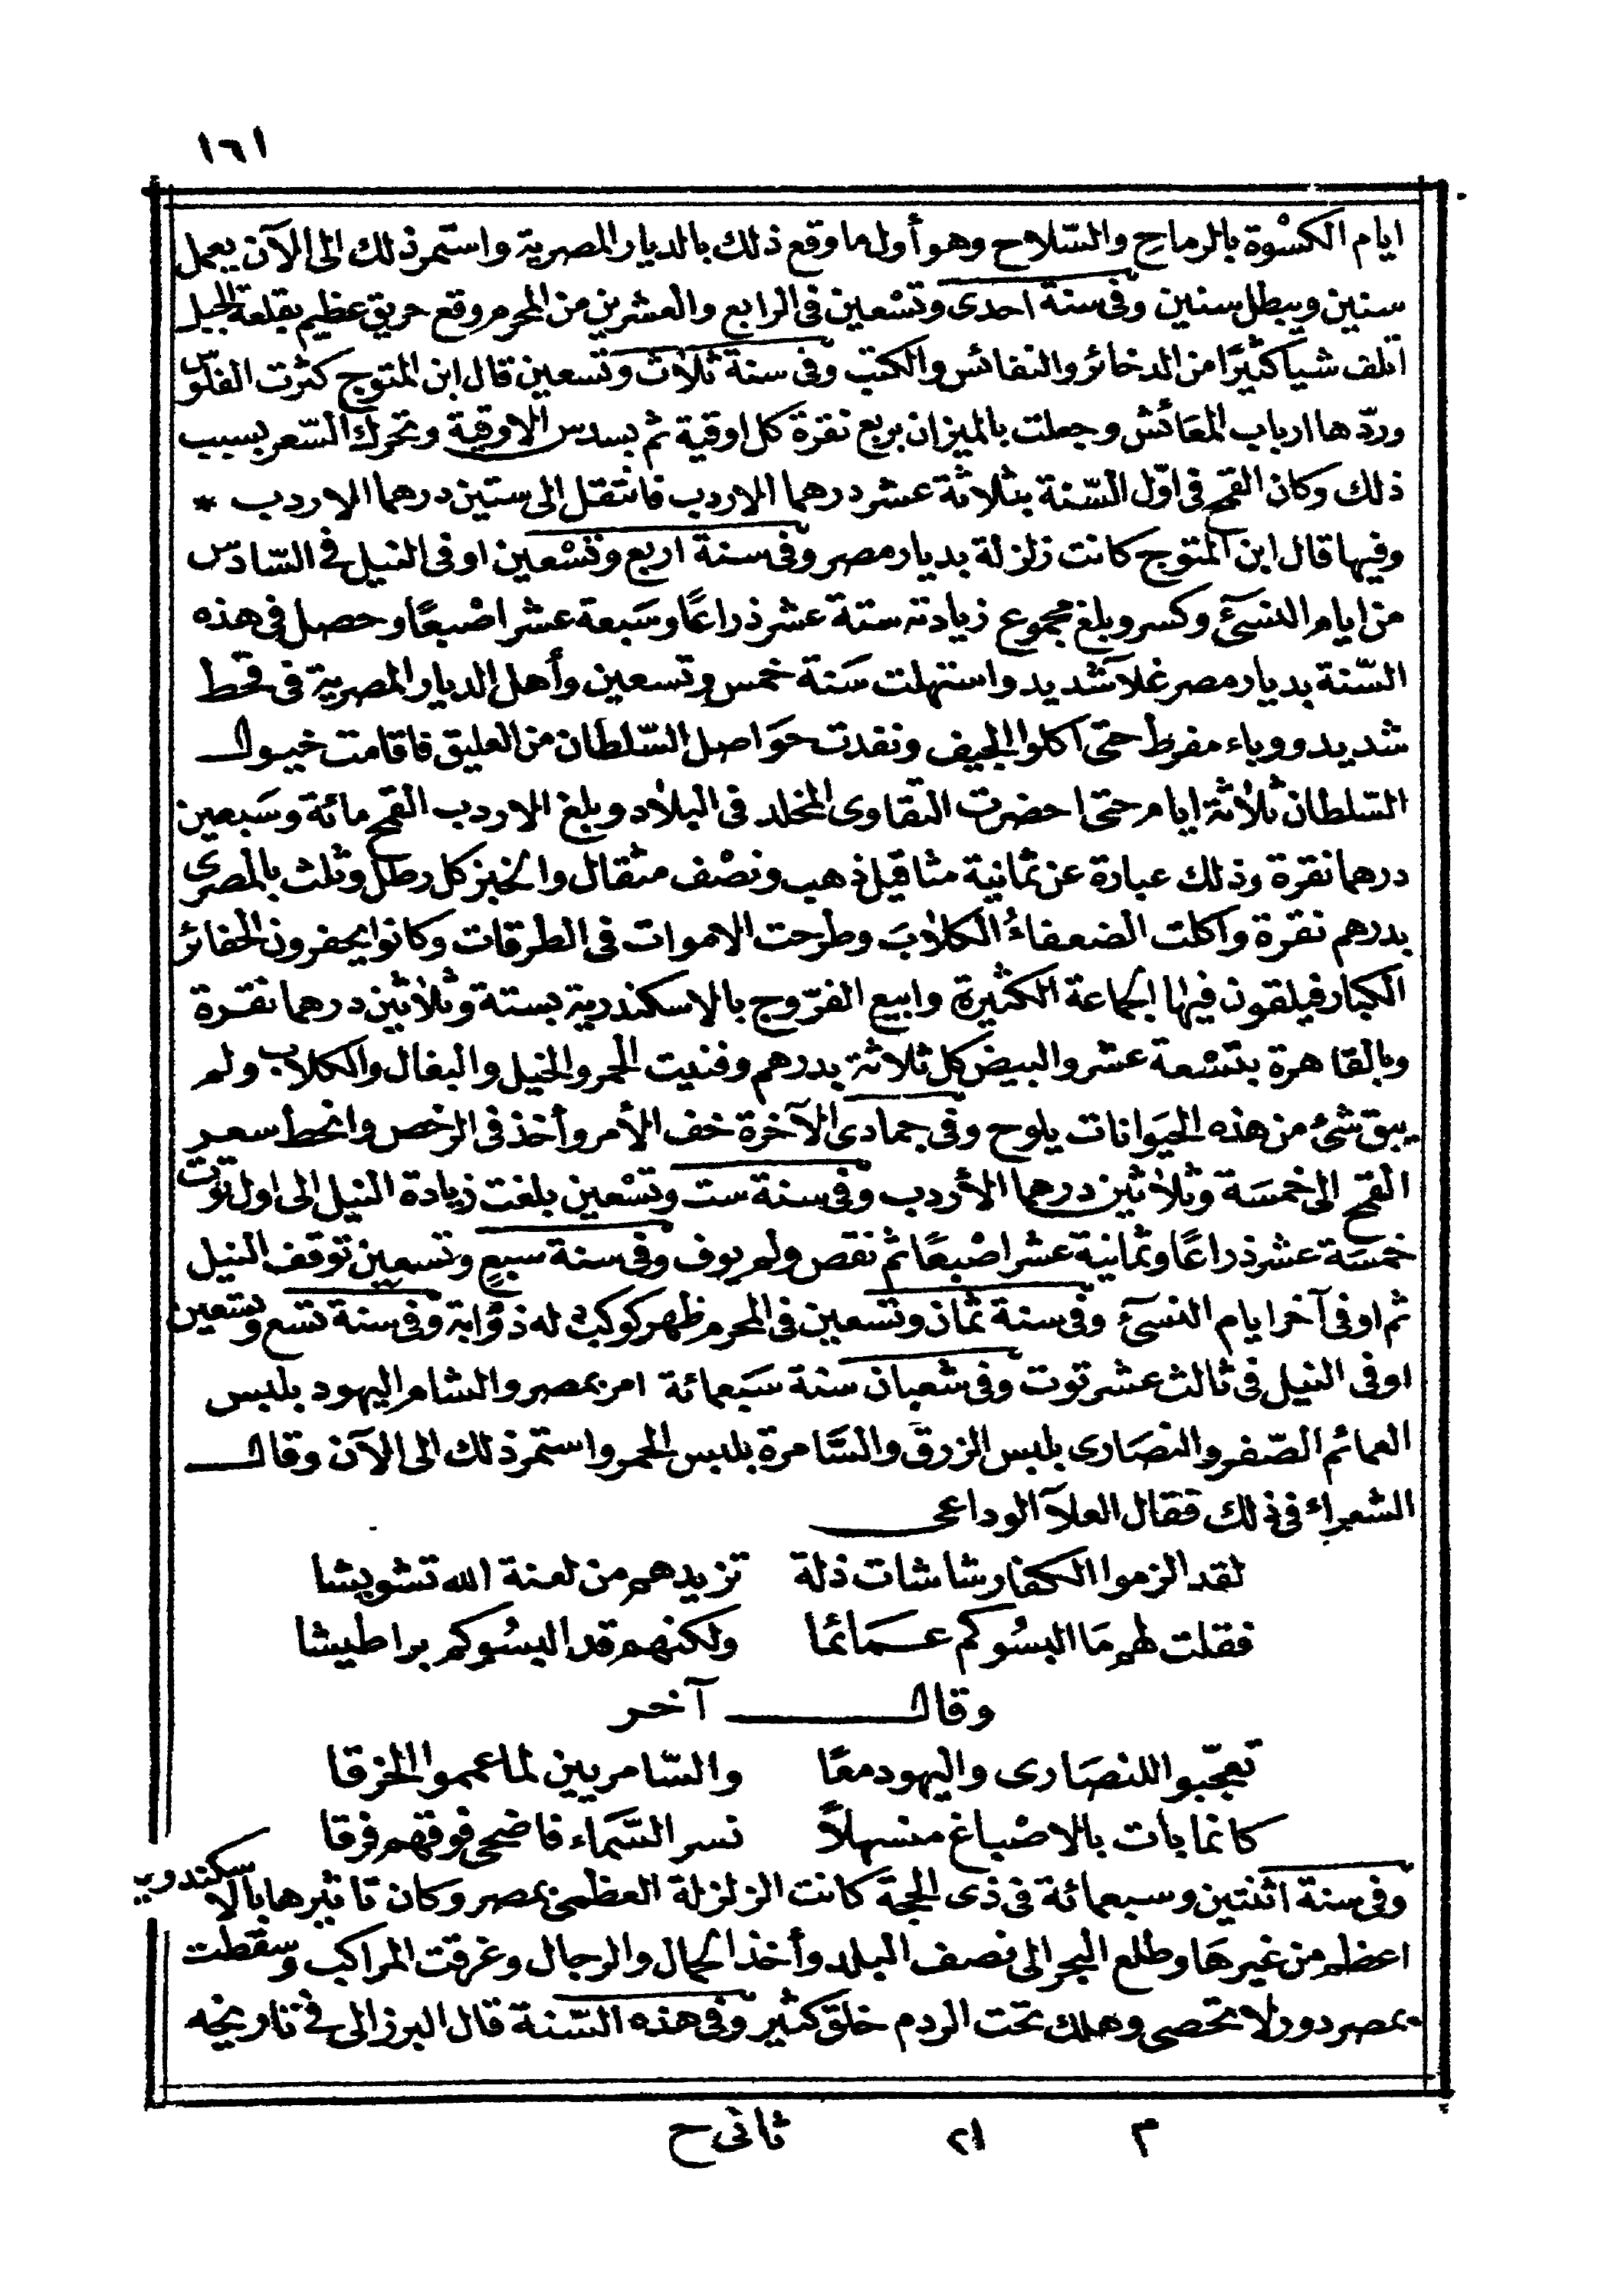 ١٦١
ايام الكسْوة بالرماح والسّلاح وهو أول ما وقع ذلك بالديار المصرية واستمر ذلك الى الآن يعمل
سنين ويبطل سنين وفى سنة احدى وتسْعين فى الرابع والعشرين من المحرم وقع حريق عظيم بقلعة الجبل
اتلف شيا كثيرًا من الدخائر والنفائس والكتب وفى سنة ثلاث وتسعين قال ابن المتوج كثرت الفلوس
وردّها ارباب المعَائش وجعلت بالميزان بربع نقرة كل اوقية ثم بسدس الاوقية وتحرك السّعر بسبب
ذلك وكان القمح فى اوّل السّنة بثلاثة عشر درهما الاردب فانتقل الى ستين درهما الاردب *
وفيها قال ابن المتوج كانت زلزلة بديار مصر وفى سنة اربع وتسْعين اوفى النيل فى السّادس
من ايام النسَىْٔ وكسر وبلغ مجموع زيادته ستة عشر ذراعًا وسَبعة عشر اصْبعًا وحصل فى هذه
السّنة بديار مصر غلآ شديد واستهلت سَنة خمس وتسعين وأهل الديار المصرية فى قحط
شديد ووباء مفرط حتى اكلوا الجيف ونفدت حوَاصل السّلطان من العليق فاقامت خيول
السّلطان ثلاثة ايام حتى احضرت التقاوى المخلد فى البلاد وبلغ الاردب القمح مائة وسَبعين
درهما نقرة وذلك عبارة عن ثمانية مثاقيل ذهب ونصْف مثقال والخبز كل رطل وثلث بالمصرى
بدرهم نقرة واكلت الضعفاءُ الكلابَ وطرحت الاموات فى الطرقات وكانوا يحفرون الحفائر
الكبار فيلقون فيها الجماعة الكثيرة وابيع الفرّوج بالاسكندرية بستة وثلاثين درهما نقرة
وبالقاهرة بتسْعة عشر والبيض كل ثلاثة بدرهم وفنيت الحمر والخيل والبغال والكلاب ولم
يبق شئ من هذه الحيَوانات يلوح وفى جمادى الآخرة خف الأمر وأخذ فى الرخص وانحط سعر
القمح الى خمسَة وثلاثين درهما الأردب وفى سنة ست وتسْعين بلغت زيادة النيل الى اول توت
خمسَة عشر ذراعًا وثمانية عشر اصْبعًا ثم نقص ولم يوف وفى سنة سبعٍ وتسعين توقف النيل
ثم اوفى آخر ايام النسىٔ وفى سنة ثمان وتسعين فى المحرم ظهر كوكب له ذؤابة وفى سنة تسع وتسعين
اوفى النيل فى ثالث عشر توت وفى شعبان سنة سَبعمائة امر بمصر والشام اليهود بلبس
العمائم الصّفر والنصَارى بلبس الزرق والسَّامرة بلبس الحمر واستمر ذلك الى الآن وقال
الشعراء فى ذلك فقال العلآ الوداعى
لقد الزموا الكفار شاشات ذلة تزيدهم من لعنة الله تشويشا
فقلت لهم مَا البسُوكم عمَائما ولكنهم قد البسُوكم براطيشا
وقال آخر
تعجّبوا للنصَارى واليهود معًا والسّامريين لما عمموا الخرقا
كانما بات بالاصْباغ منسهلاً نسر السَّماء فاضحى فوقهم فرقا
وفى سنة اثنتين وسبعمائة فى ذى الحجة كانت الزلزلة العظمىٰ بمصر وكان تاثيرها بالاسكندرية
اعظم من غيرهَا وطلع البحر الى نصف البلد وأخذ الجمال والرجال وغرقت المراكب وسقطت
بمصر دور لا تحصى وهلك تحت الردم خلق كثير وفى هذه السّنة قال البرزالى فى تاريخه
م ٢١ ثانى ح